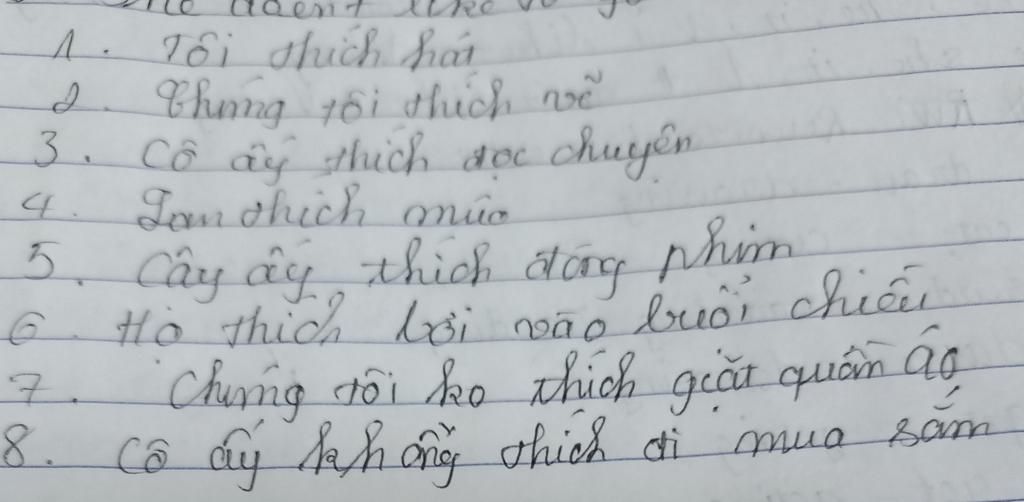 1. Tôi thích hát
2. Chúng tôi thích vẽ
3. Cô ấy thích đọc chuyện
4. thích múa
5. Cây ấy thích đóng phim
6. Họ thích bơi vào buổi chiều
7. Chúng tôi ko thích giặt quần áo
8. Cô ấy không thích đi mua sắm